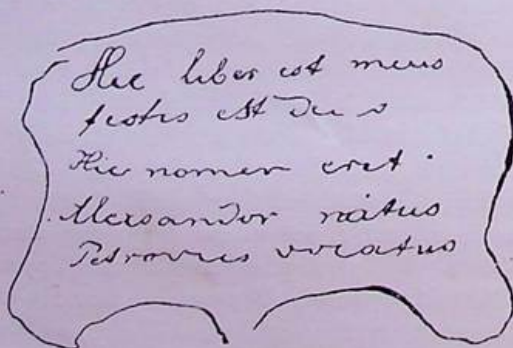 Hic liber est meus
testis est Deus
Hic nomen erit
Alexsandor natus
Petrovics vocatus